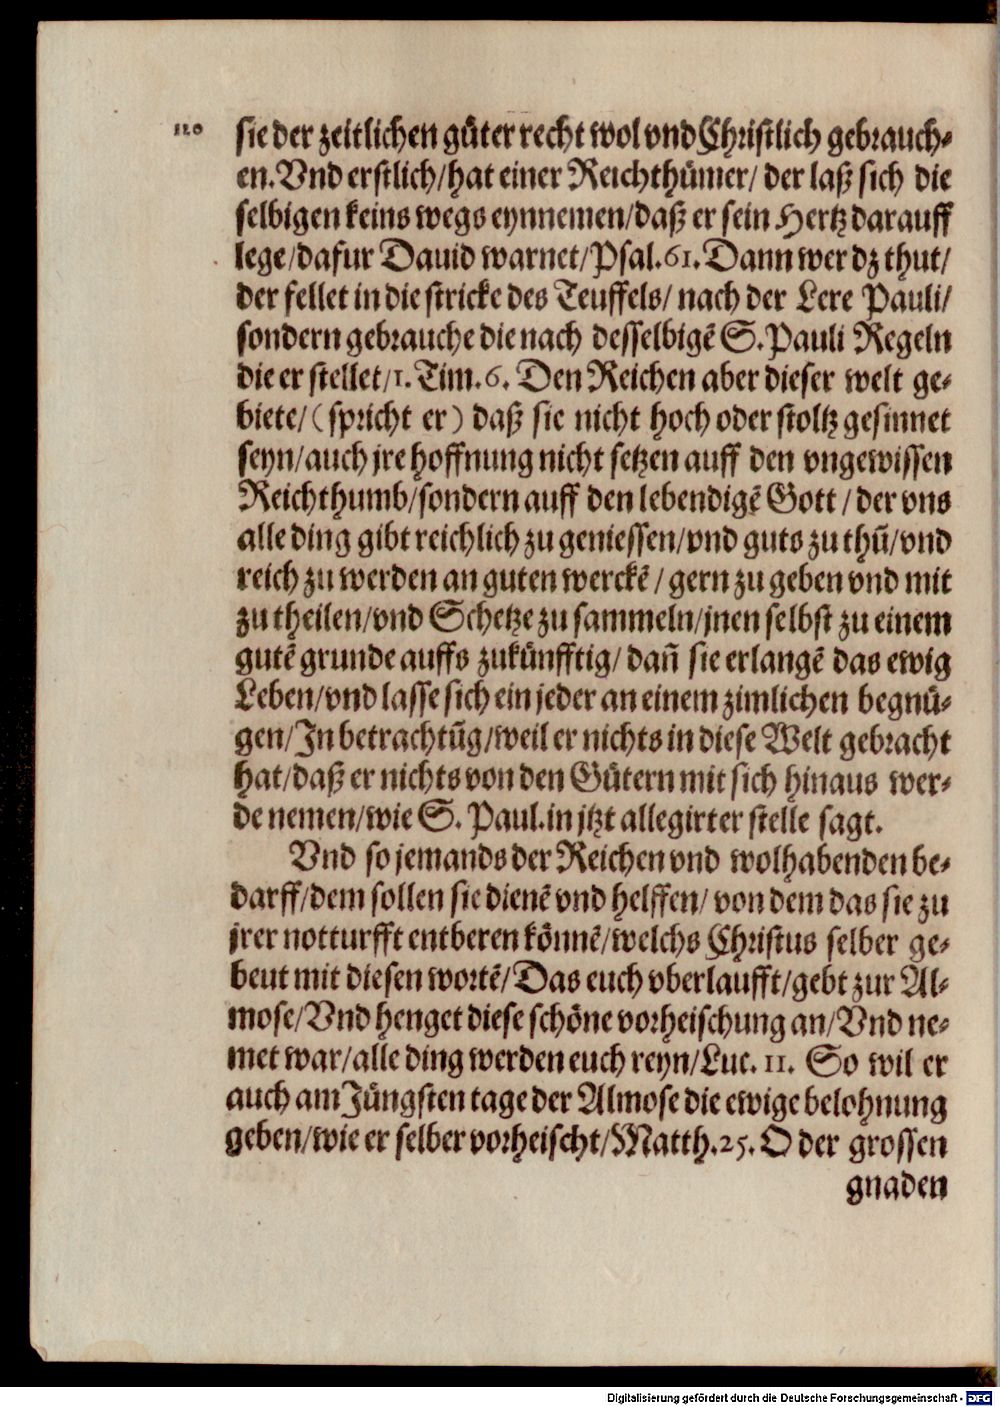 110
sie der zeitlichen gůter recht wol vnd Christlich gebrauch-
en. Vnd erstlich/ hat einer Reichthůmer/ der laß sich die
selbigen keins wegs eynnemen/ daß er sein Hertz darauff
lege/ dafur Dauid warnet/ Psal. 61. Dann wer dz thut/
der fellet in die stricke des Teuffels/ nach der Lere Pauli/
sondern gebrauche die nach desselbigē S. Pauli Regeln
die er stellet/ 1. Tim. 6. Den Reichen aber dieser welt ge-
biete/ (spricht er) daß sie nicht hoch oder stoltz gesinnet
seyn/ auch jre hoffnung nicht setzen auff den vngewissen
Reichthumb/ sondern auff den lebendigē Gott/ der vns
alle ding gibt reichlich zu geniessen/ vnd guts zu thū/ vnd
reich zu werden an guten werckē/ gern zu geben vnd mit
zu theilen/ vnd Schetze zu sammeln/ jnen selbst zu einem
gutē grunde auffs zukůnfftig/ dañ sie erlangē das ewig
Leben/ vnd lasse sich ein jeder an einem zimlichen begnů-
gen/ In betrachtūg/ weil er nichts in diese Welt gebracht
hat/ daß er nichts von den Gůtern mit sich hinaus wer-
de nemen/ wie S. Paul. in jtzt allegirter stelle sagt.
Vnd so jemands der Reichen vnd wolhabenden be-
darff/ dem sollen sie dienē vnd helffen/ von dem das sie zu
jrer notturfft entberen kônnē/ welchs Christus selber ge-
beut mit diesen wortē/ Das euch vberlaufft/ gebt zur Al-
mose/ Vnd henget diese schône vorheischung an/ Vnd ne-
met war/ alle ding werden euch reyn/ Luc. 11. So wil er
auch am Jůngsten tage der Almose die ewige belohnung
geben/ wie er selber vorheischt/ Matth. 25. O der grossen
gnaden
Digitalisierung gefördert durch die Deutsche Forschungsgemeinschaft - DFG